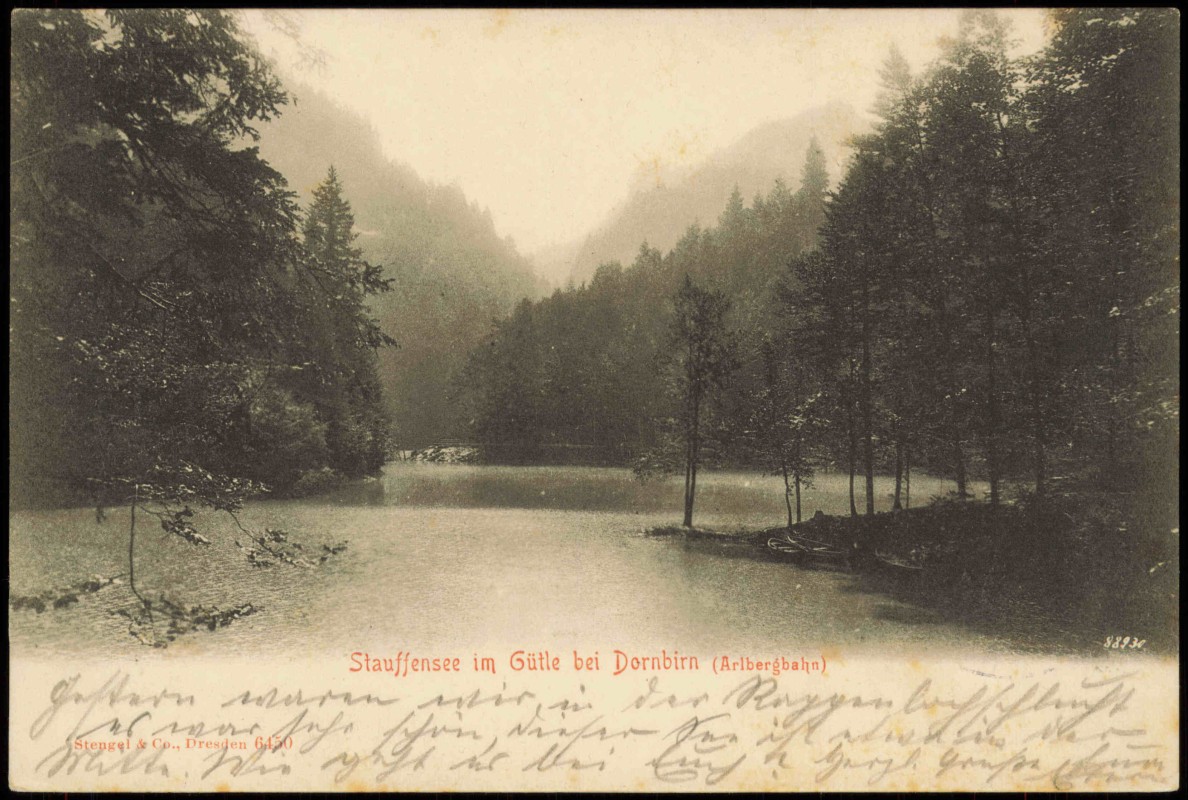 88930
Stauffensee im Gütle bei Dornbirn (Arlbergbahn)
Gestern waren wir in der Rappenlochschlucht
es war sehr schön, dieser See ist etwa in der
Stengel & Co., Dresden 6450
Mitte. Wie geht es bei Euch? Herzl. Grüße